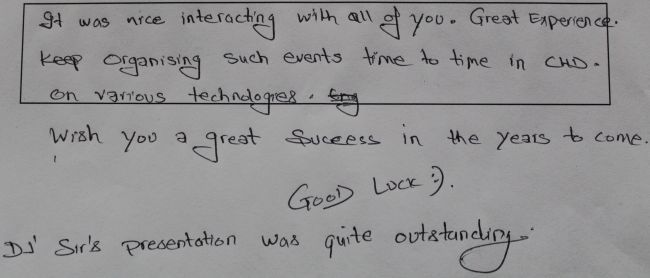 It was nice interacting with all of you. Great Experience.
Keep Organising such events time to time in CHD.
on various technologies.
Wish you a great Success in the years to come.
GOOD LUCK :).
DJ' Sir's presentation was quite outstanding.